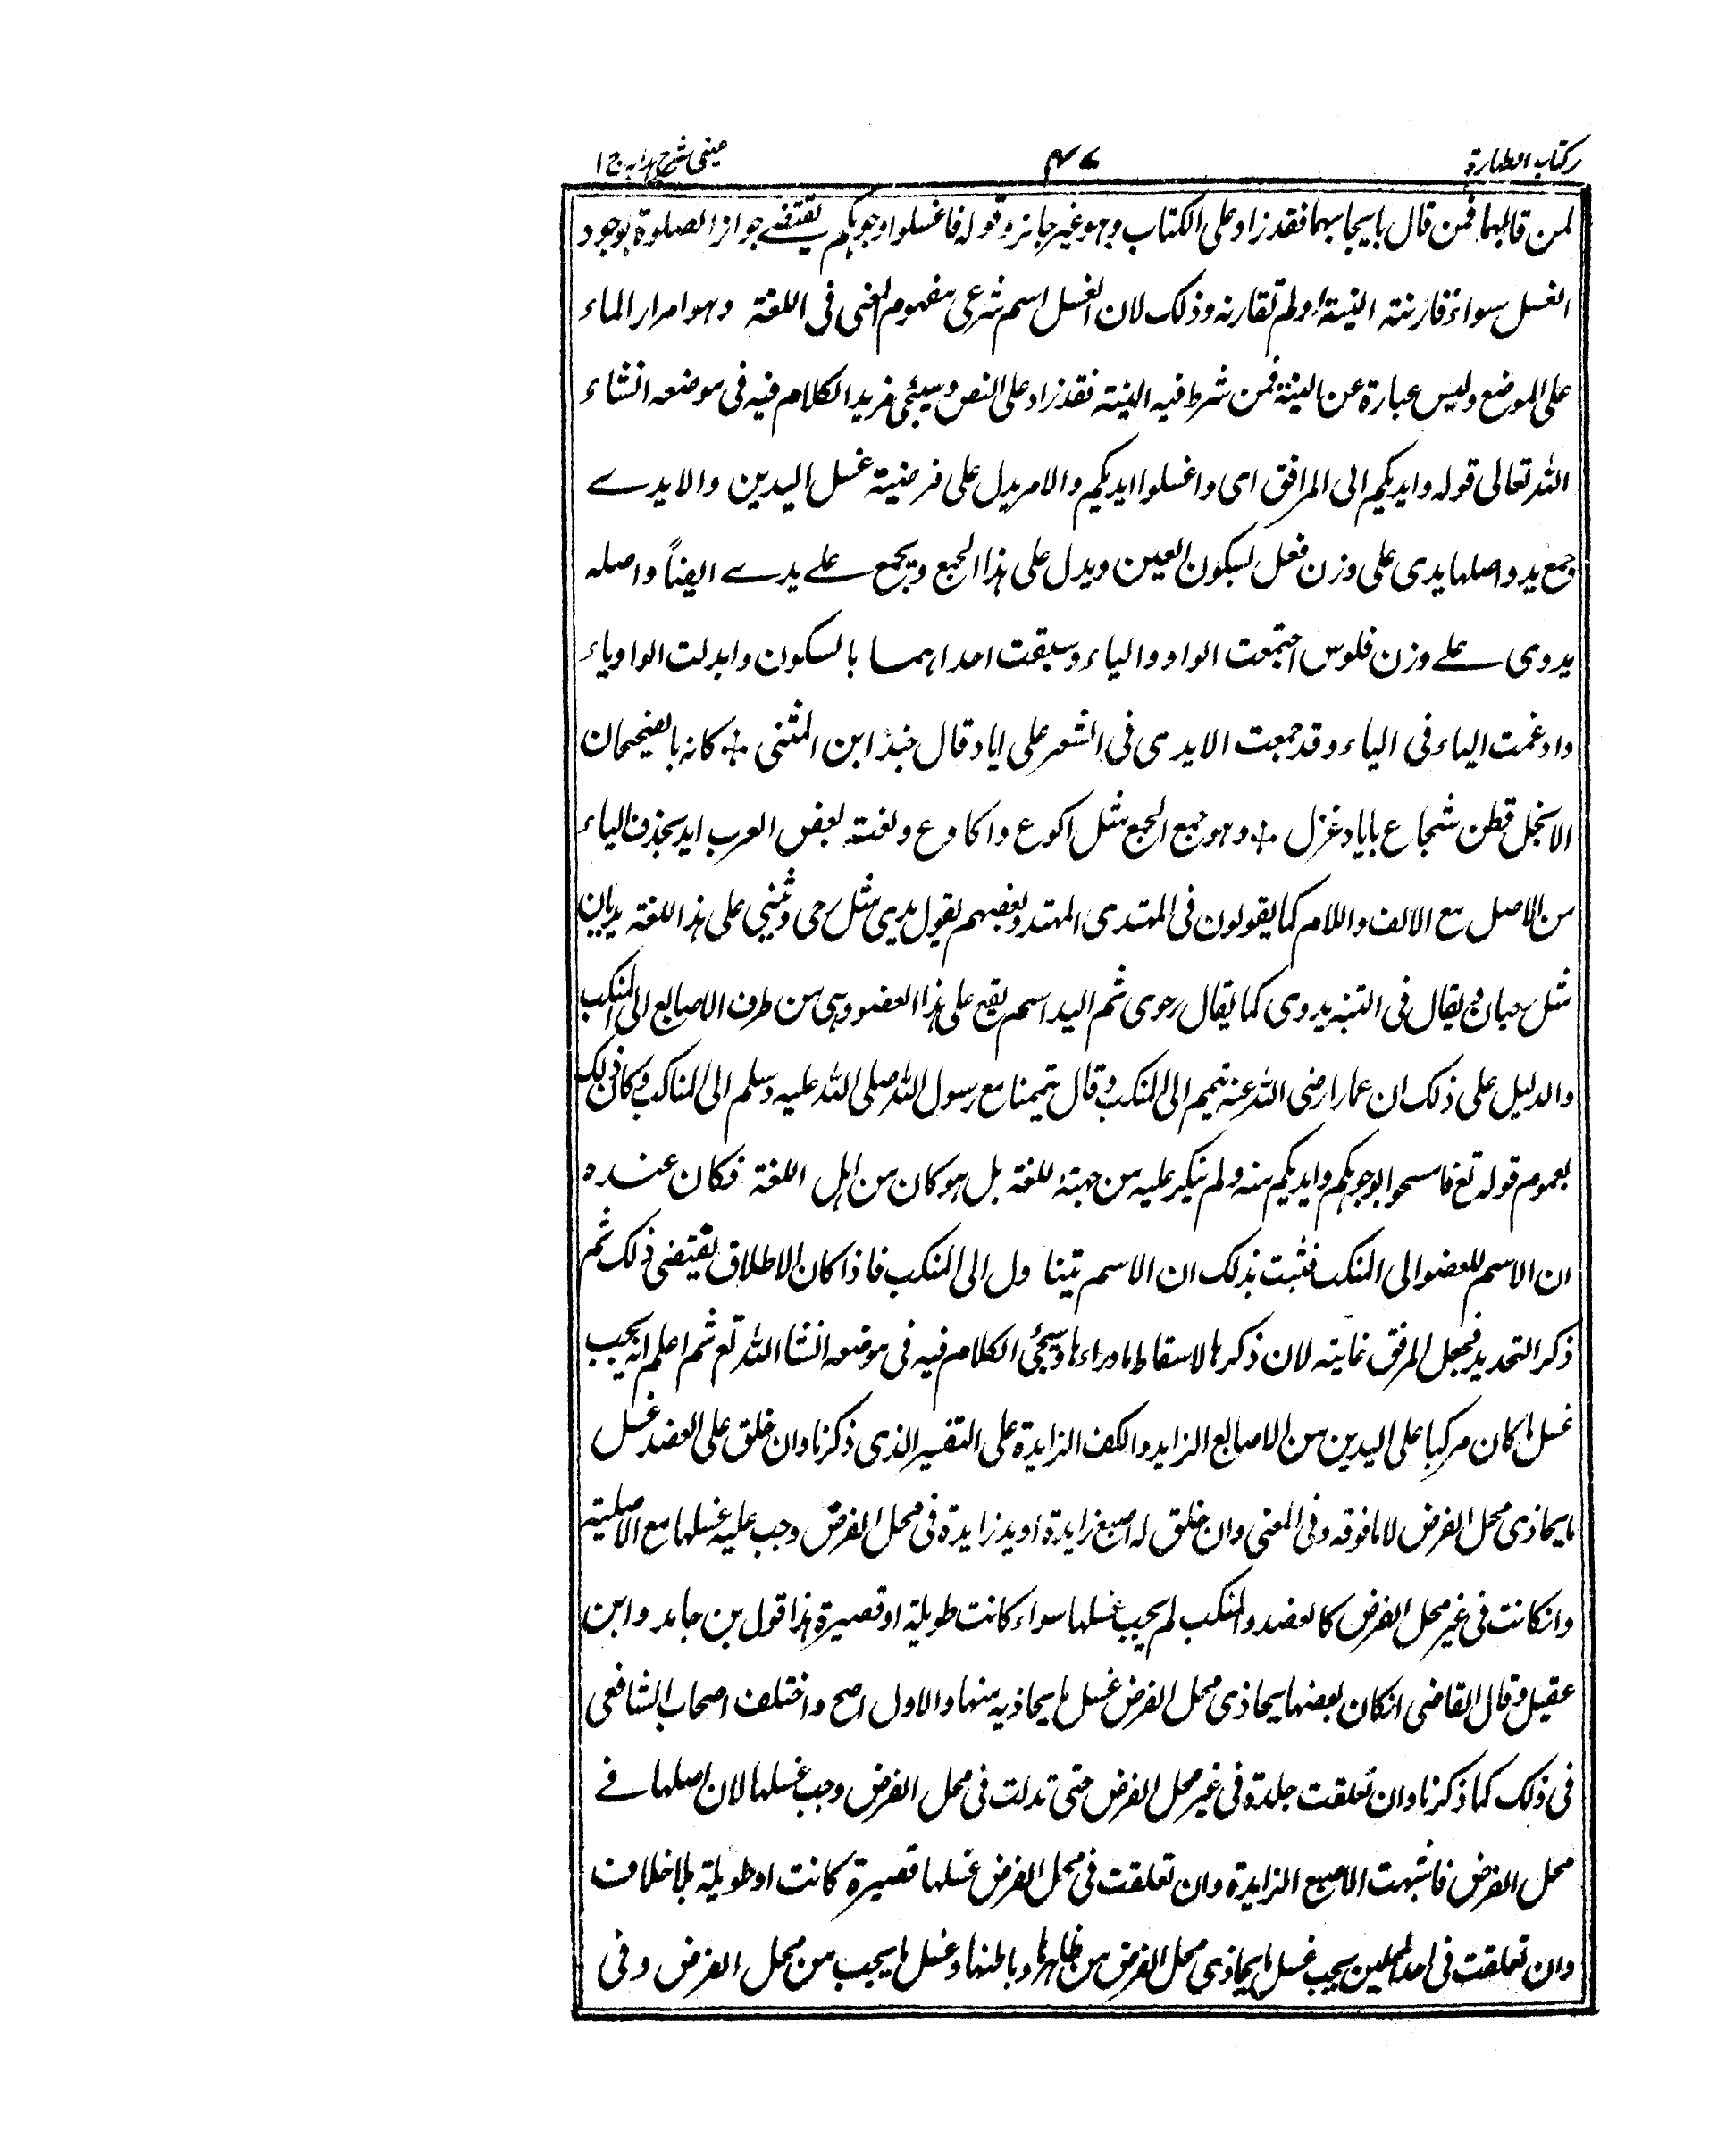 كتاب الطهارة ٤٧ عينى شرح هدايه ج ١
لمن قالهما فمن قال بايجابهما فقد زاد على الكتاب وهو غير جائز وقوله فاغسلوا وجوهكم يقتضى جواز الصلوة بوجود
الغسل سواء قارنته النية او لم تقارنه وذلك لان الغسل اسم شرعى مفهوم المعنى فى اللغة وهو امرار الماء
على الموضع وليس عبارة عن النية فمن شرط فيه النية فقد زاد على النص وسيئجى مزيد الكلام فيه فى موضعه انشاء
الله تعالى قوله وايديكم الى المرافق اى واغسلوا ايديكم والامر يدل على فرضية غسل اليدين والايدے
جمع يد واصلها يدى على وزن فعل بسكون العين ويدل على هذا الجمع ويجمع علے يدے ايضاً واصله
يدوى علے وزن فلوس اجتمعت الواو والياء وسبقت احداهما بالسكون وابدلت الواو ياء
وادغمت الياء فى الياء وقد جمعت الايدى فى الشعر على اياد قال جندل ابن المثنى كانه بالضحضحان
الانجل قطن سخام باياد غزل وهو جمع الجمع مثل اكوع واكاوع ولغة لبعض العرب ايد بحذف الياء
من الاصل مع الالف واللام كما يقولون فى المهتدى المهتد وبعضهم يقول يدى مثل رحى وتثنى على هذا اللغة يديان
مثل رحيان ويقال فى التثنيه يدوى كما يقال رحوى ثم اليد اسم يقع على هذا العضو وهى من طرف الاصابع الى المنكب
والدليل على ذلك ان عمارا رضى الله عنه تيمم الى المنكب وقال تيممنا مع رسول الله صلى الله عليه وسلم الى المناكب وكان ذلك
بعموم قوله تع فامسحوا بوجوهكم وايديكم منه ولم ينكر عليه من جهة اللغة بل هو كان من اهل اللغة فكان عنده
ان الاسم للعضو الى المنكب فثبت بذلك ان الاسم يتناول الى المنكب فاذا كان الاطلاق يقتضى ذلك ثم
ذكر التحديد فجعل المرفق غاية لان ذكرها لاسقاط ما وراءها وسيجئى الكلام فيه فى موضعه انشا الله تع ثم اعلم انه يجب
غسل ما كان مركبا على اليدين من الاصابع الزايد والكف الزايدة على التفسير الذى ذكرنا وان خلق على العضد غسل
ما يحاذى محل الفرض لا ما فوقه وفى المغنى وان خلق له اصبع زايدة او يد زايدة فى محل الفرض وجب عليه غسلها مع الاصلية
وانكانت فى غير محل الفرض كالعضد والمنكب لم يجب غسلها سواء كانت طويلة او قصيرة هذا قول بن حامد وابن
عقيل وقال القاضى انكان بعضها يحاذى محل الفرض غسل ما يحاذيه منها والاول اصح واختلف اصحاب الشافعى
فى ذلك كما ذكرنا وان تعلقت جلدة فى غير محل الفرض حتى تدلت فى محل الفرض وجب غسلها لان اصلها فے
محل الفرض فاشبهت الاصبع الزايدة وان تعلقت فى محل الفرض غسلها قصيرة كانت او طويلة بلا خلاف
وان تعلقت فى احد المحلين يجب غسل ما يحاذى محل الفرض من ظاهرها وباطنها وغسل ما يجب من محل الفرض وفى